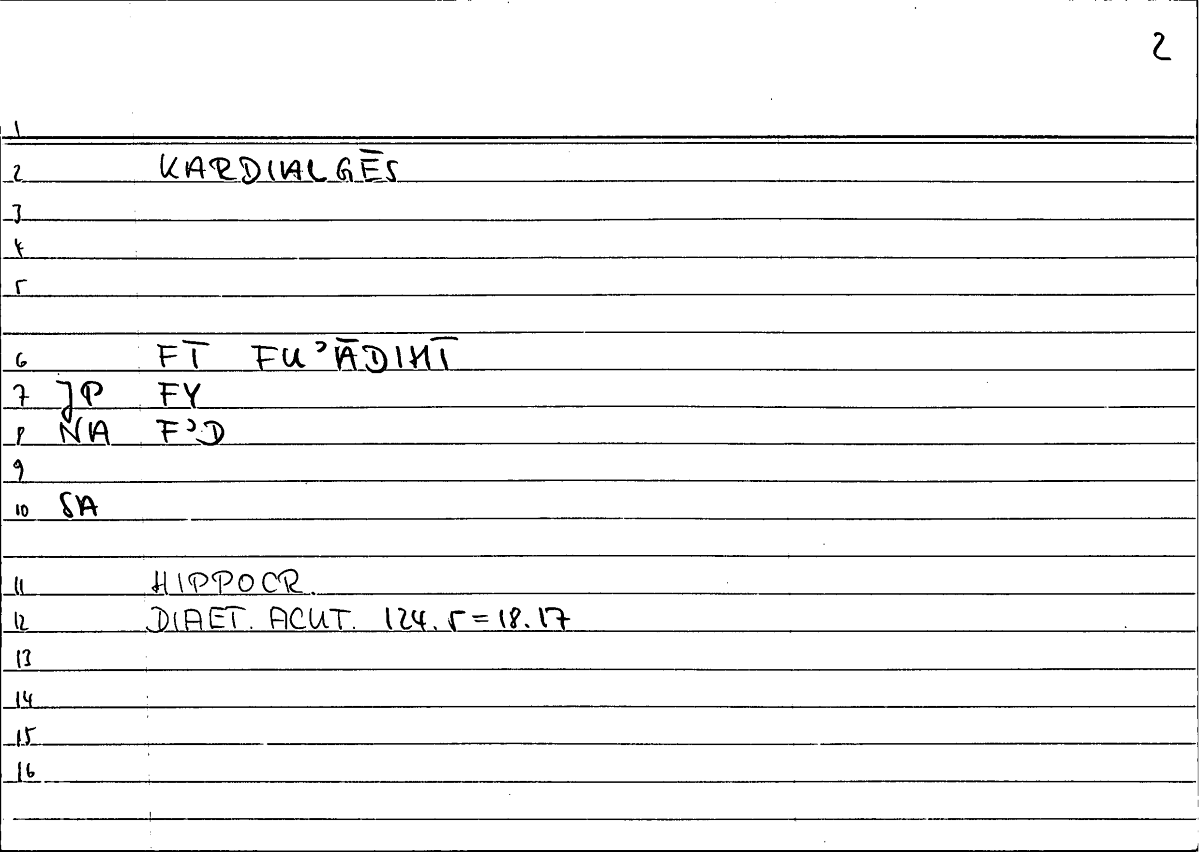 2
1
2 KARDIALGĒS
3
4
5
6 FĪ FU᾿ĀDIHĪ
7 JP FY
8 NA F᾿D
9
10 SA
11 HIPPOCR.
12 DIAET. ACUT. 124.5 = 18.17
13
14
15
16